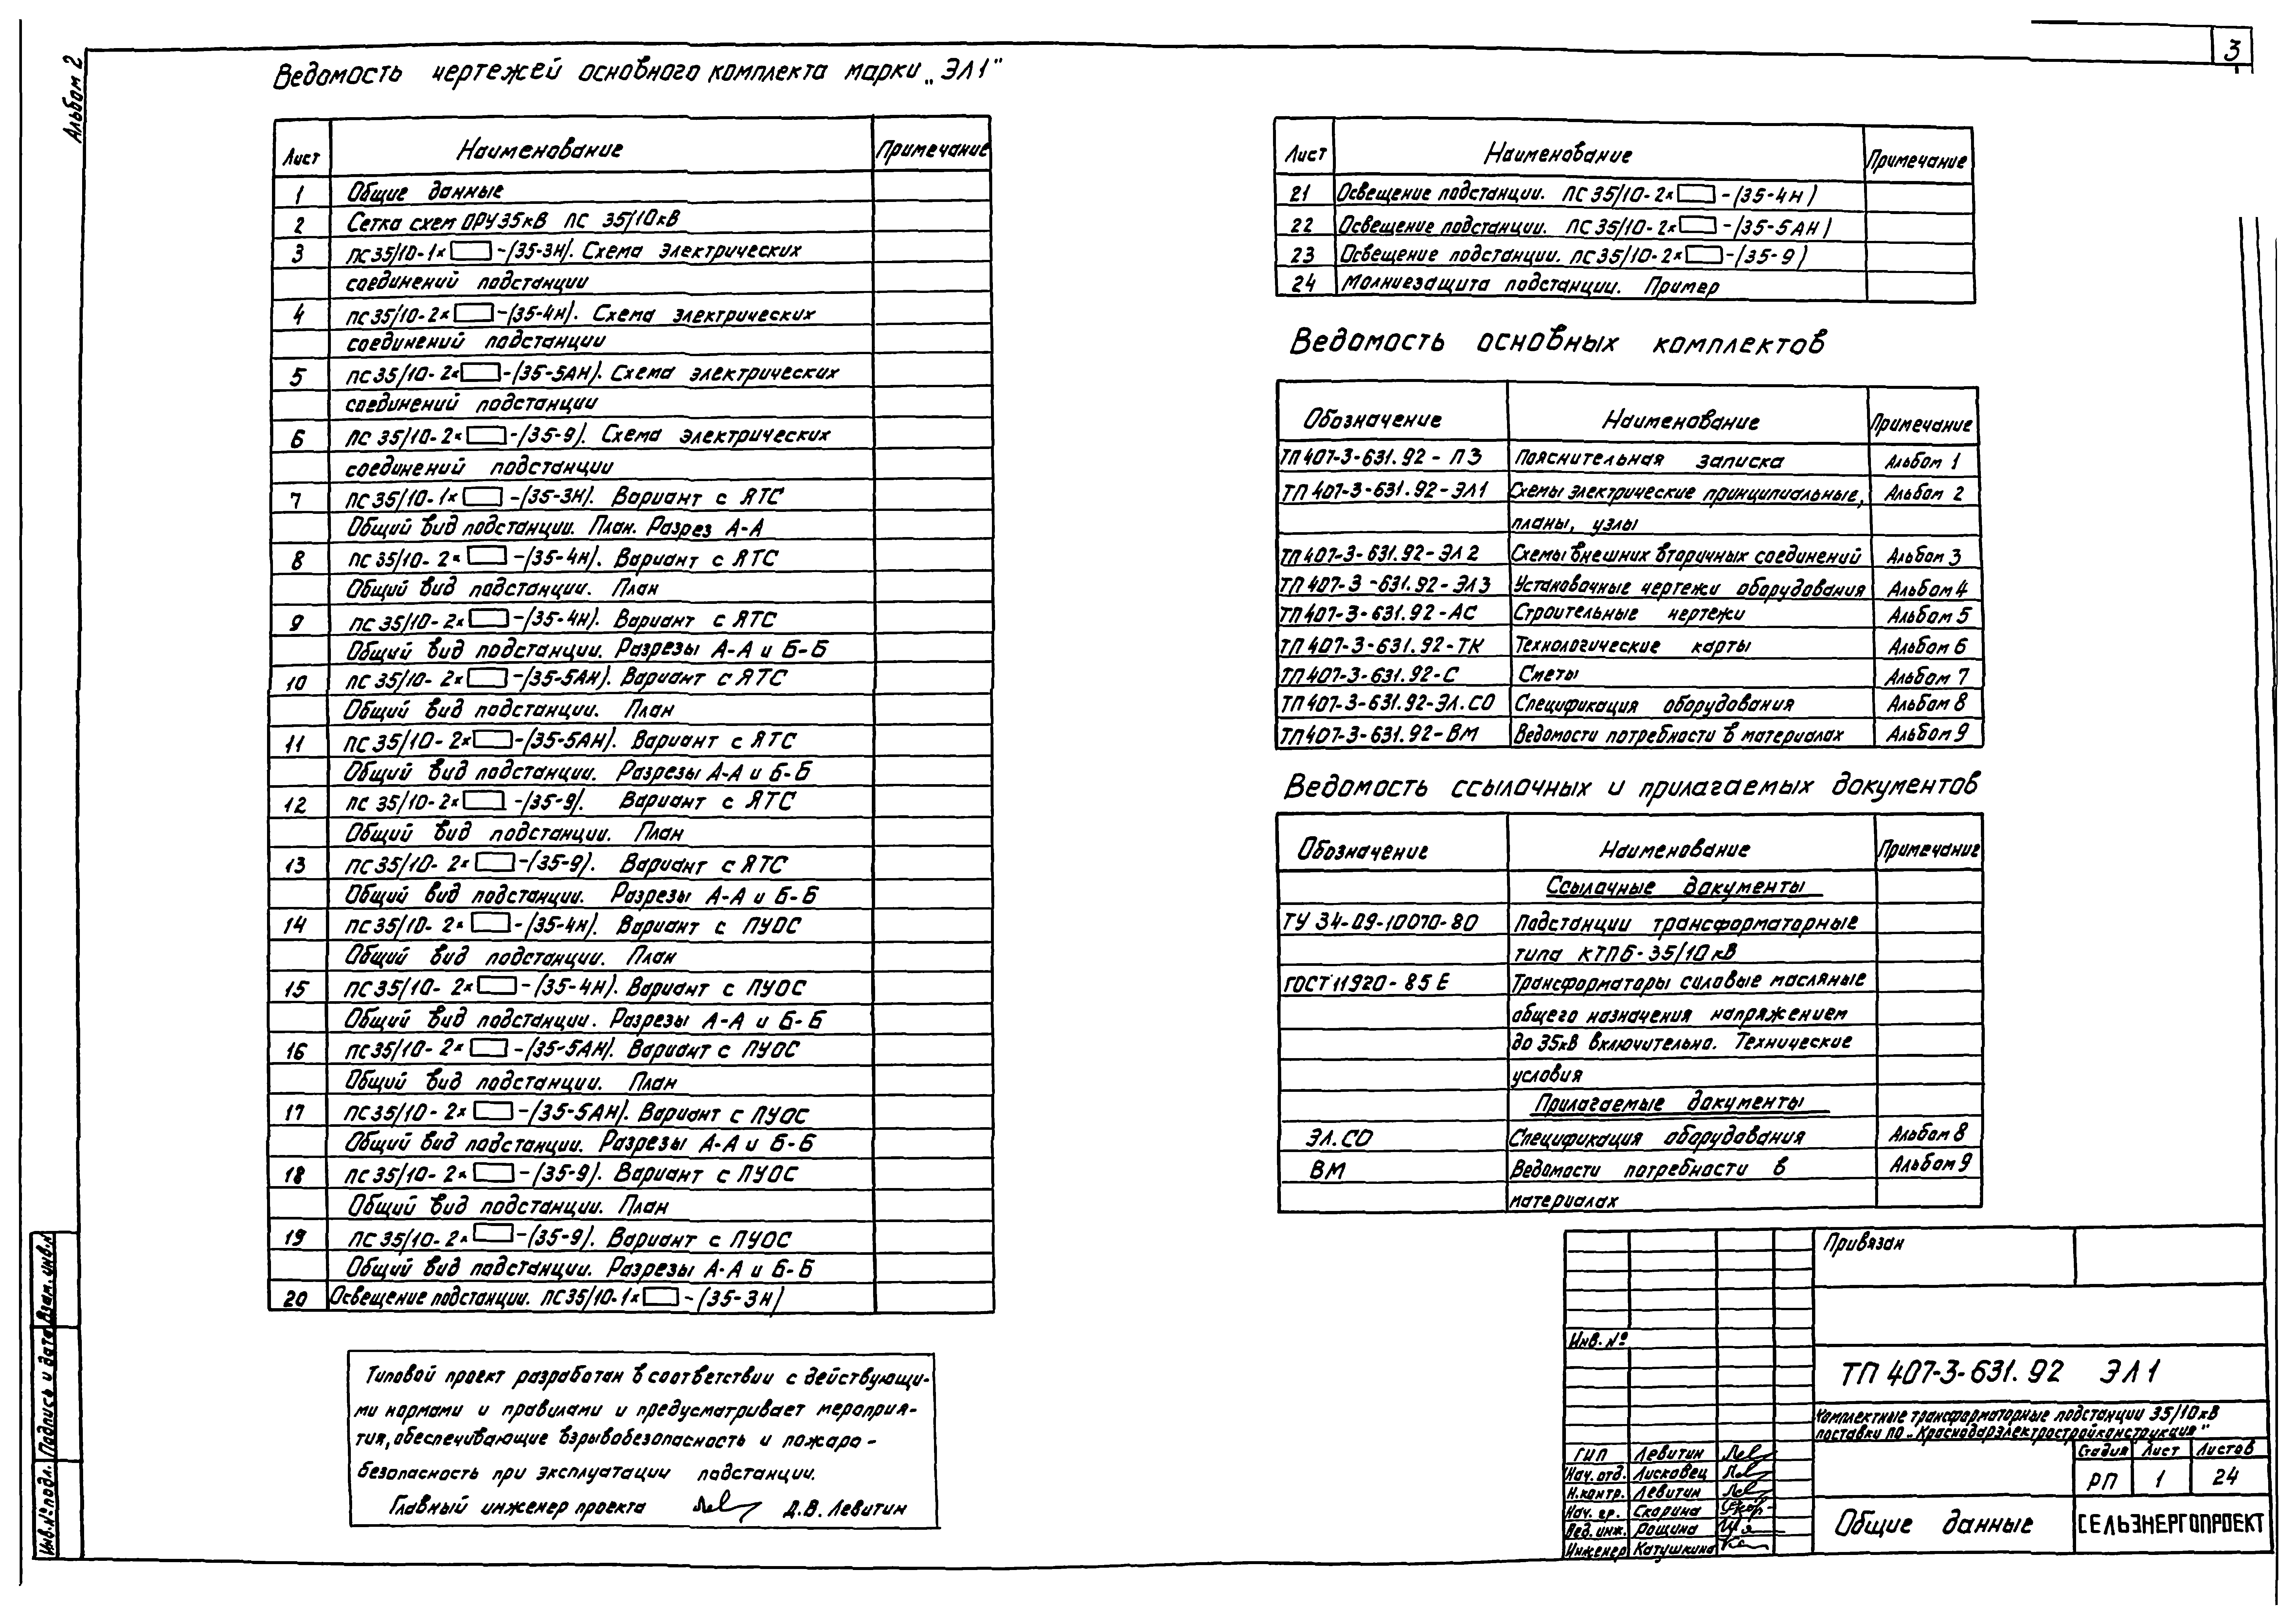 3
Альбом 2
Ведомость чертежей основного комплекта марки „ЭЛ1"
Лист Наименование Примечание
1 Общие данные
2 Сетка схем ОРУ35кВ ПС 35/10кВ
3 ПС35/10-1×□-(35-3Н). Схема электрических
соединений подстанции
4 ПС35/10-2×□-(35-4Н). Схема электрических
соединений подстанции
5 ПС35/10-2×□-(35-5АН). Схема электрических
соединений подстанции
6 ПС 35/10-2×□-(35-9). Схема электрических
соединений подстанции
7 ПС35/10-1×□-(35-3Н). Вариант с ЯТС
Общий вид подстанции. План. Разрез А-А
8 ПС 35/10-2×□-(35-4Н). Вариант с ЯТС
Общий вид подстанции. План
9 ПС 35/10-2×□-(35-4Н). Вариант с ЯТС
Общий вид подстанции. Разрезы А-А и Б-Б
10 ПС 35/10-2×□-(35-5АН). Вариант с ЯТС
Общий вид подстанции. План
11 ПС 35/10-2×□-(35-5АН). Вариант с ЯТС
Общий вид подстанции. Разрезы А-А и Б-Б
12 ПС 35/10-2×□-(35-9). Вариант с ЯТС
Общий вид подстанции. План
13 ПС35/10-2×□-(35-9). Вариант с ЯТС
Общий вид подстанции. Разрезы А-А и Б-Б
14 ПС35/10-2×□-(35-4Н). Вариант с ПУОС
Общий вид подстанции. План
15 ПС35/10-2×□-(35-4Н). Вариант с ПУОС
Общий вид подстанции. Разрезы А-А и Б-Б
16 ПС35/10-2×□-(35-5АН). Вариант с ПУОС
Общий вид подстанции. План
17 ПС35/10-2×□-(35-5АН). Вариант с ПУОС
Общий вид подстанции. Разрезы А-А и Б-Б
18 ПС35/10-2×□-(35-9). Вариант с ПУОС
Общий вид подстанции. План
19 ПС35/10-2×□-(35-9). Вариант с ПУОС
Общий вид подстанции. Разрезы А-А и Б-Б
20 Освещение подстанции. ПС35/10-1×□-(35-3Н)
Типовой проект разработан в соответствии с действующи-
ми нормами и правилами и предусматривает мероприя-
тия, обеспечивающие взрывобезопасность и пожаро-
безопасность при эксплуатации подстанции.
Главный инженер проекта Д.В. Левитин
Лист Наименование Примечание
21 Освещение подстанции. ПС35/10-2×□-(35-4Н)
22 Освещение подстанции. ПС35/10-2×□-(35-5АН)
23 Освещение подстанции. ПС35/10-2×□-(35-9)
24 Молниезащита подстанции. Пример
Ведомость основных комплектов
Обозначение Наименование Примечание
ТП407-3-631.92-ПЗ Пояснительная записка Альбом 1
ТП407-3-631.92-ЭЛ1 Схемы электрические принципиальные, Альбом 2
планы, узлы
ТП407-3-631.92-ЭЛ2 Схемы внешних вторичных соединений Альбом 3
ТП407-3-631.92-ЭЛ3 Установочные чертежи оборудования Альбом 4
ТП407-3-631.92-АС Строительные чертежи Альбом 5
ТП407-3-631.92-ТК Технологические карты Альбом 6
ТП407-3-631.92-С Сметы Альбом 7
ТП407-3-631.92-ЭЛ.СО Спецификация оборудования Альбом 8
ТП407-3-631.92-ВМ Ведомости потребности в материалах Альбом 9
Ведомость ссылочных и прилагаемых документов
Обозначение Наименование Примечание
Ссылочные документы
ТУ 34-09-10070-80 Подстанции трансформаторные
типа КТПБ-35/10кВ
ГОСТ 11920-85Е Трансформаторы силовые масляные
общего назначения напряжением
до 35кВ включительно. Технические
условия
Прилагаемые документы
ЭЛ.СО Спецификация оборудования Альбом 8
ВМ Ведомости потребности в Альбом 9
материалах
Привязан
Инв. №
ТП 407-3-631.92 ЭЛ1
Комплектные трансформаторные подстанции 35/10кВ
поставки ПО „Краснодарэлектростройконструкция"
Стадия Лист Листов
РП 1 24
ГИП Левитин
Нач. отд. Лисковец
Н.контр. Левитин
Нач. гр. Скорина
Вед. инж. Рощина
Инженер Катушкина
Общие данные
СЕЛЬЭНЕРГОПРОЕКТ
Инв.№ подл. Подпись и дата Взам. инв.№